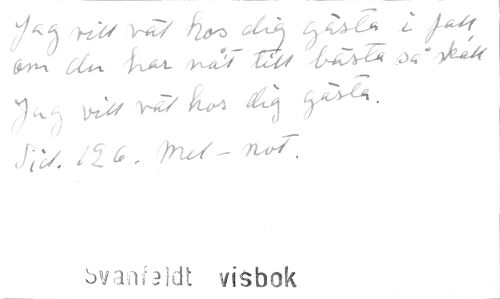 Jag vill väl hos dig gästa i fall
om du har nåt till bästa så skall
Jag vill väl hos dig gästa.
Sid. 126. Mel-not.
Svanfeldt visbok